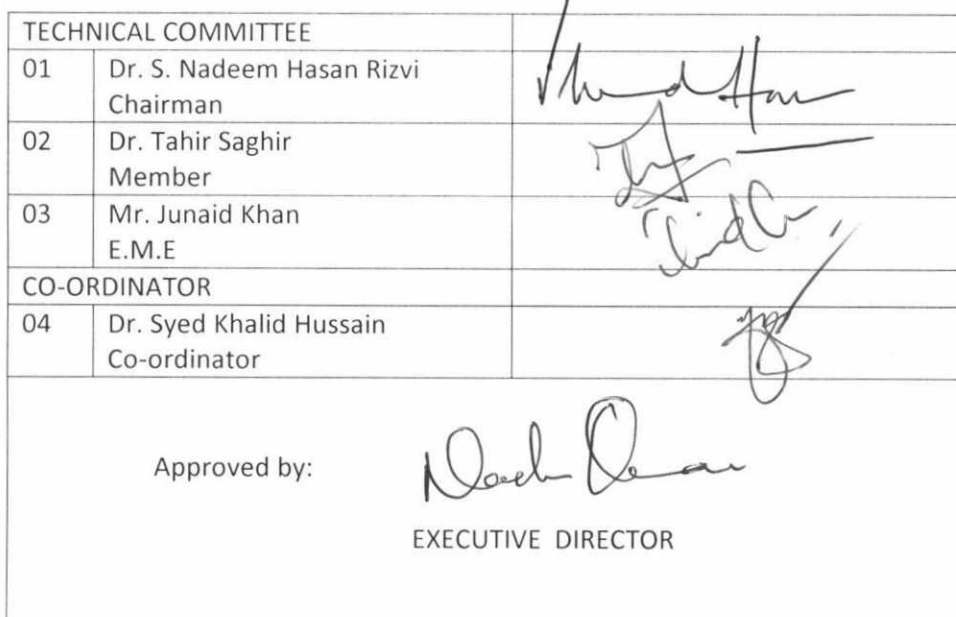 TECHNICAL COMMITTEE
01 Dr. S. Nadeem Hasan Rizvi
Chairman
02 Dr. Tahir Saghir
Member
03 Mr. Junaid Khan
E.M.E
CO-ORDINATOR
04 Dr. Syed Khalid Hussain
Co-ordinator
Approved by:
EXECUTIVE DIRECTOR